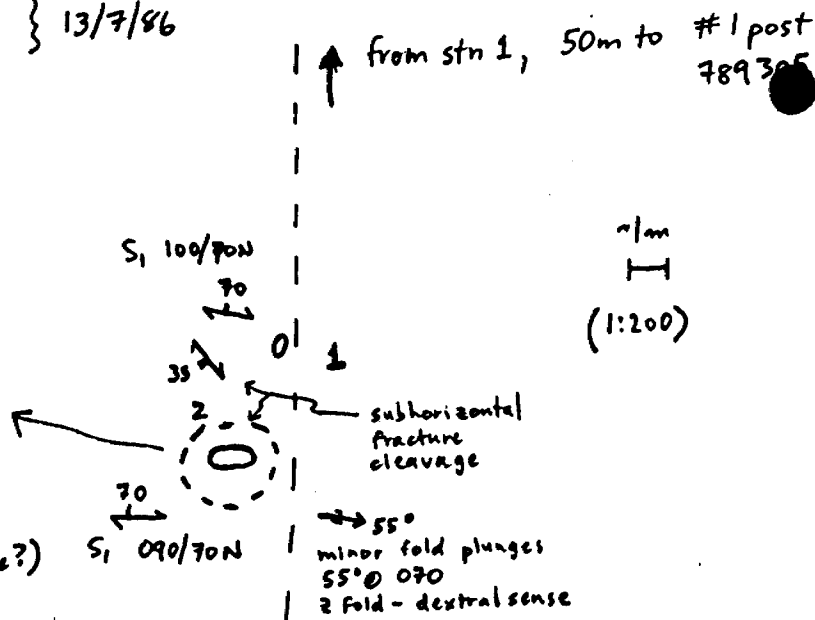 13/7/86
from stn 1, 50m to #1 post
S1 100/70N
70
~1m
(1:200)
0 1
35
2
subhorizontal
fracture
cleavage
70
S1 090/70N
55°
minor fold plunges
55° @ 070
Z fold - dextral sense
?)